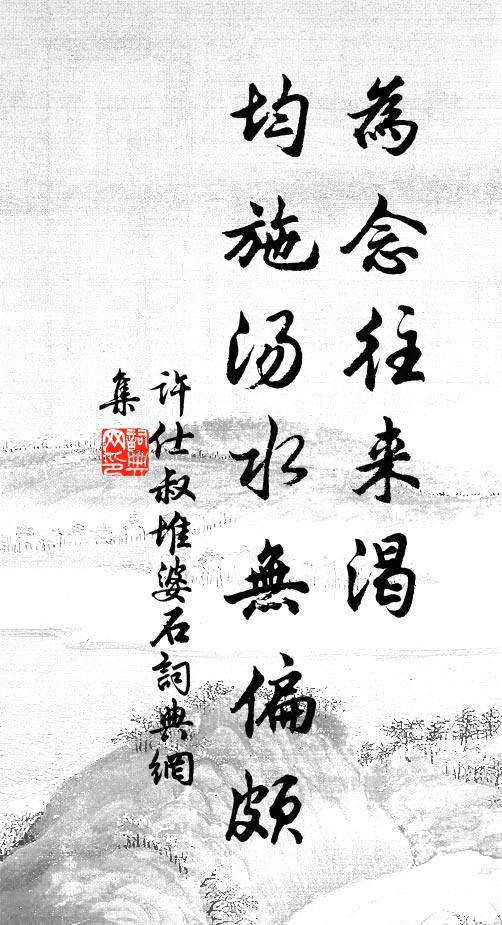 為念往来渴
均施汤水無偏頗
許仕叔堆婆石詞典網
集
詞典网印